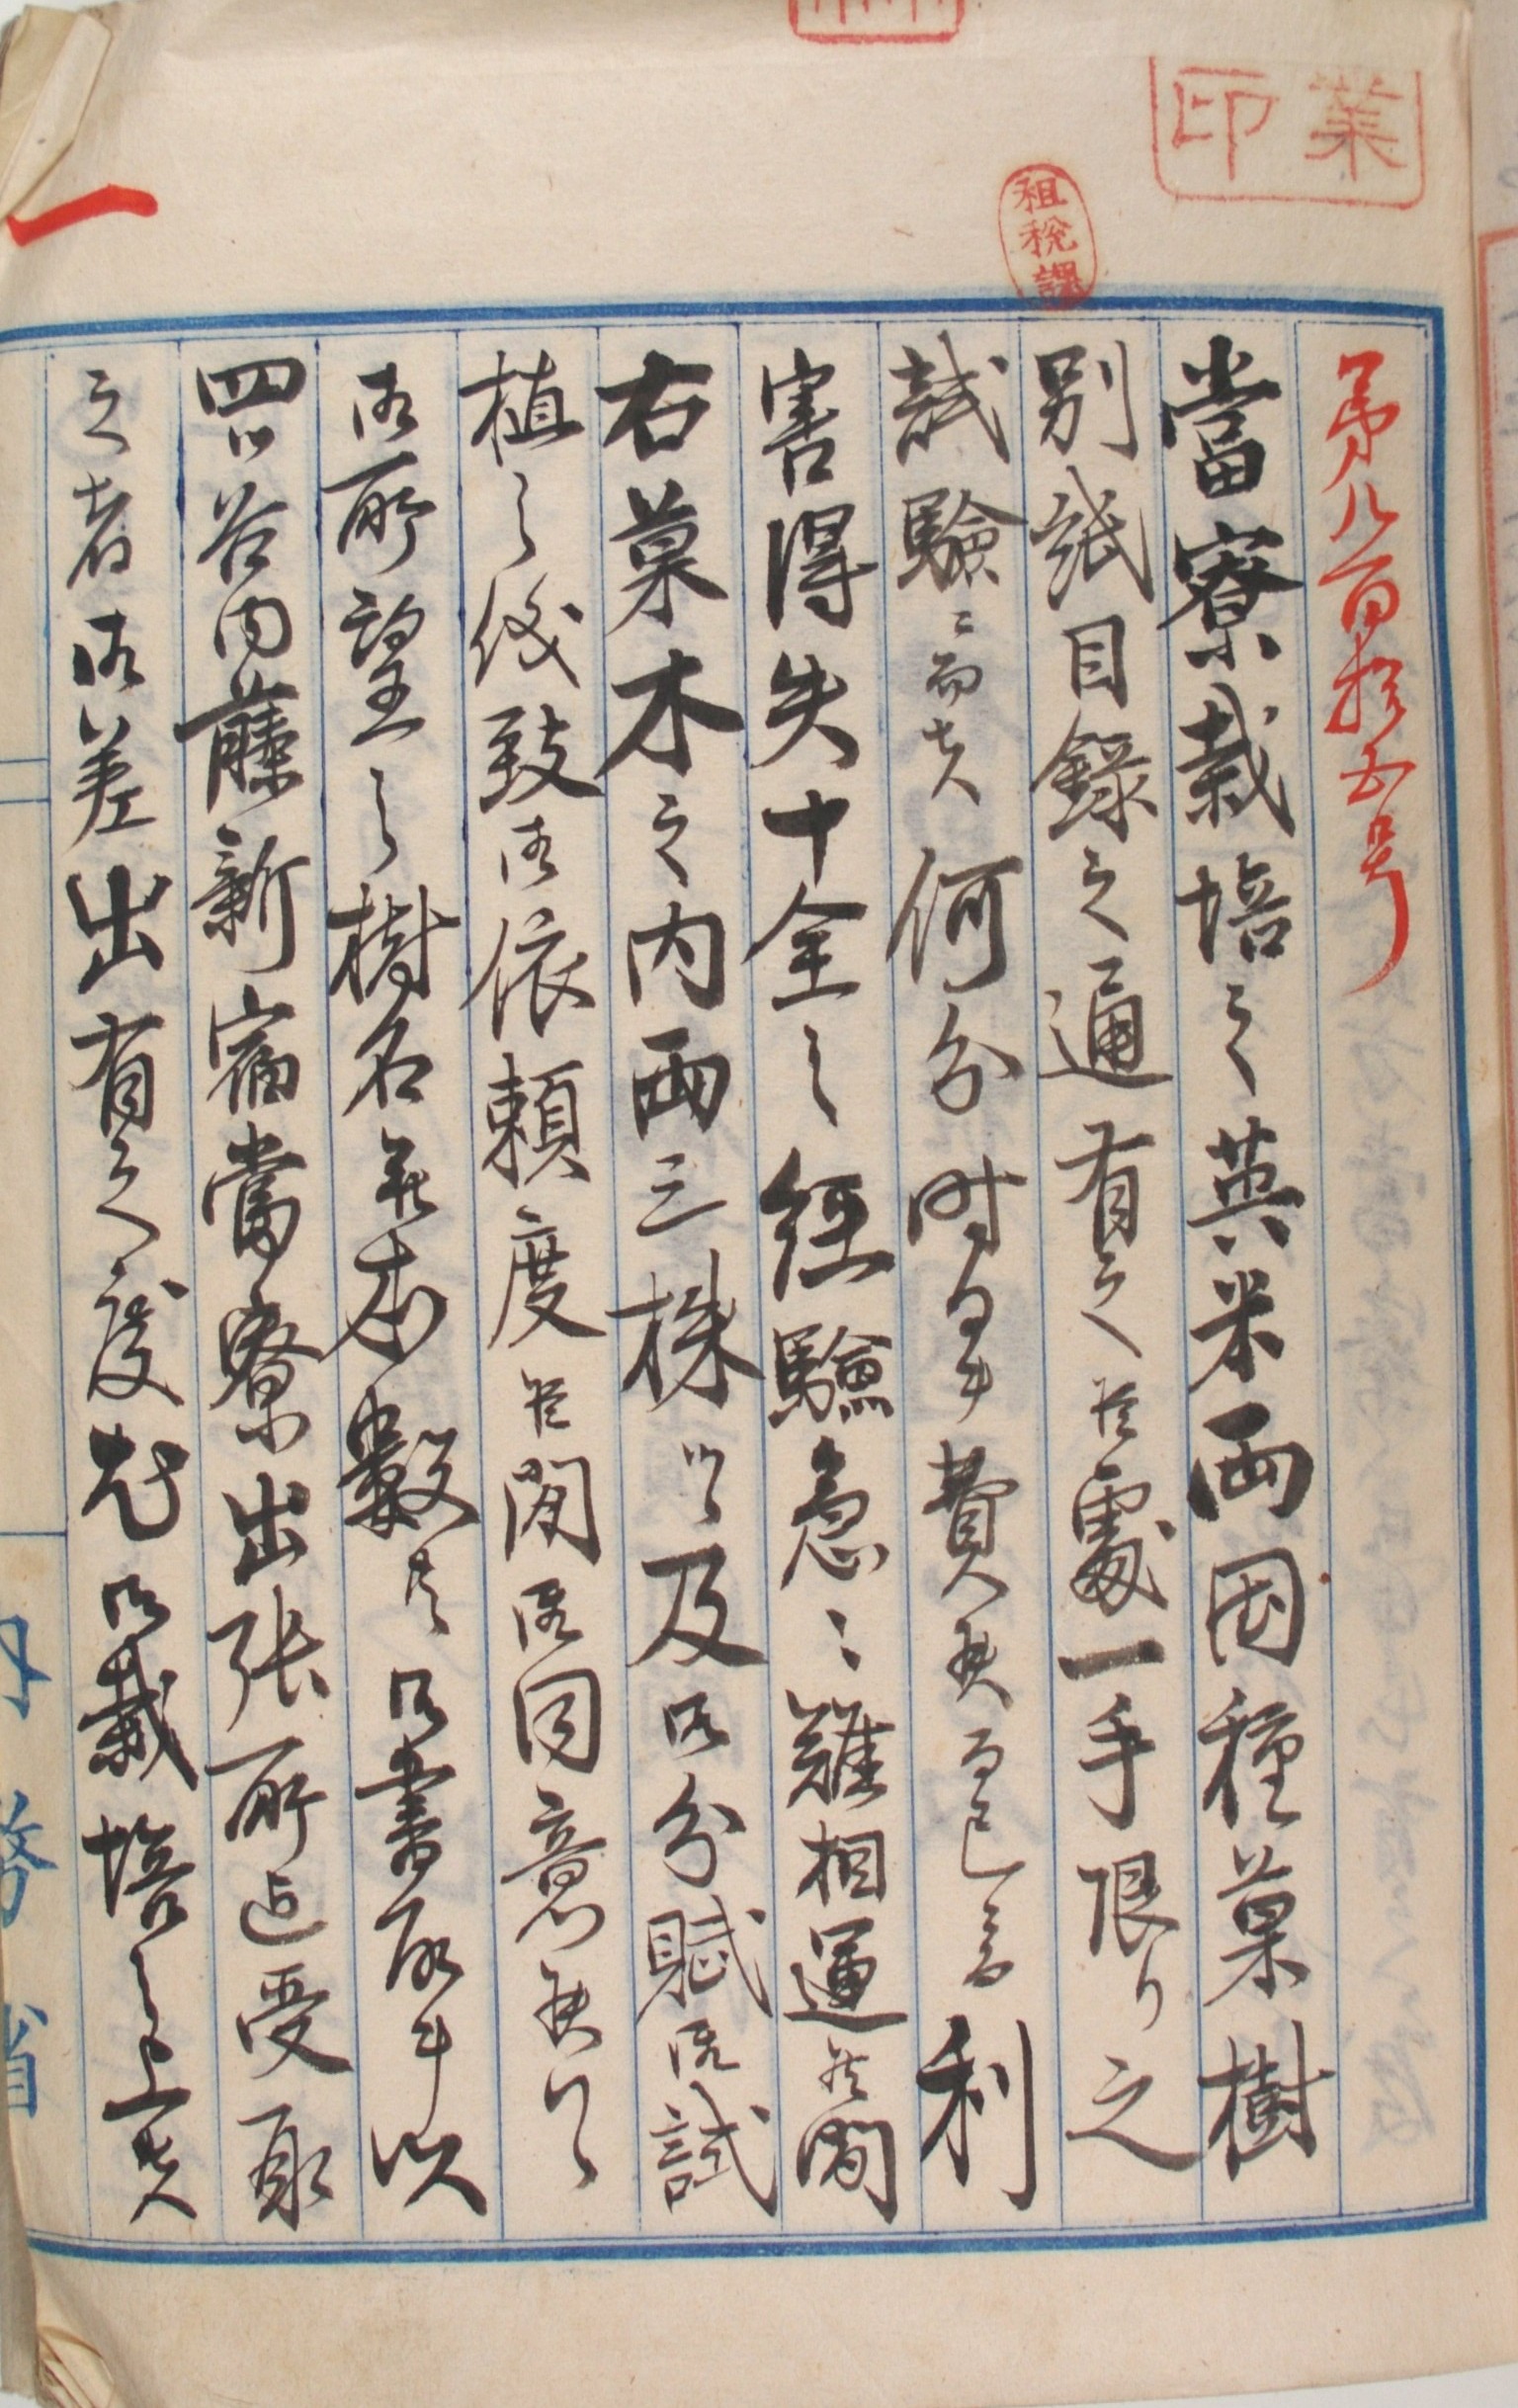 業印
租税課
第八百拾五号
當寮栽培之英米両国種菓樹
別紙目録之通有之候處一手限リ之
試験ニ而者何分時日ヲ費候而已ニ而利
害得失十全之経験急ニ難相運候間
右菓木之内両三株ツヽ及御分賦御試
植之儀致御依頼度候間御同意候ハヽ
御所望之樹名并本数共御書取ヲ以
四ツ谷内藤新宿當寮出張所迄受取
之者御差出有之度尤御栽培之上者